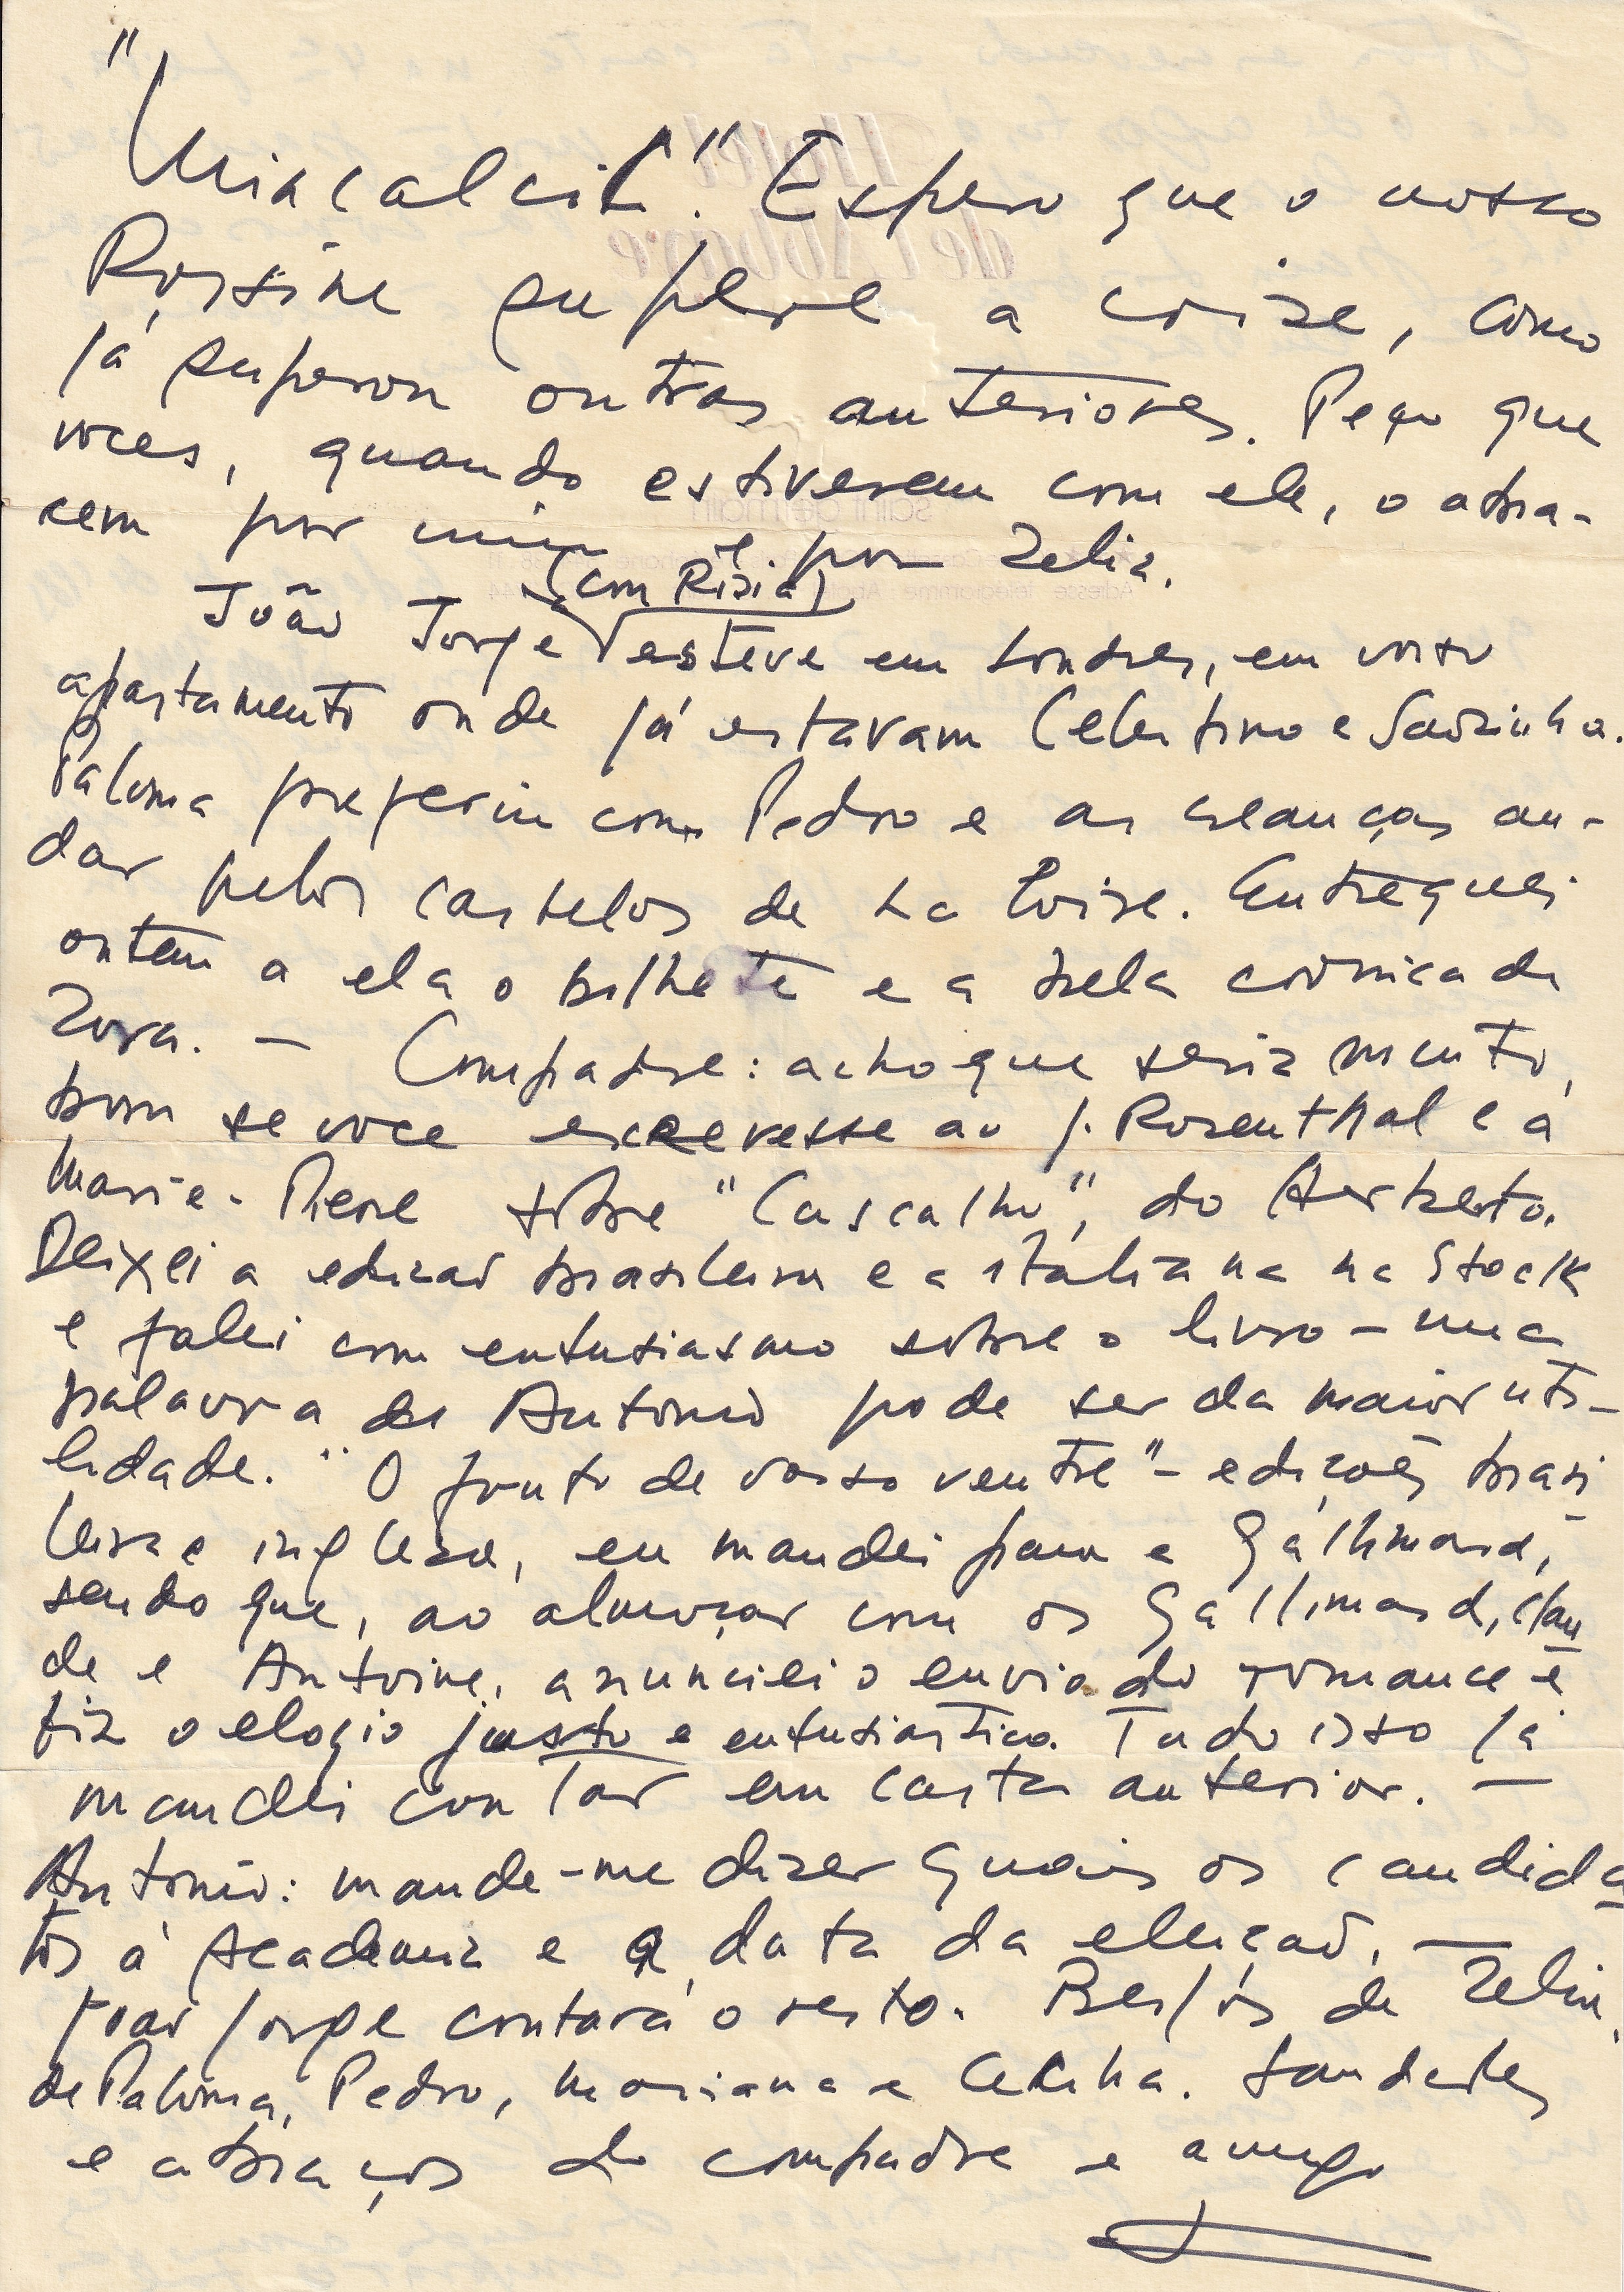 "Miacalcic". Espero que o nosso
Rossine supere a crise, como
já superou outras anteriores. Peço que
voces, quando estiverem com ele, o abra-
cem por mim e por Zelia.
(com Rizia)
João Jorge esteve em Londres, em vosso
apartamento onde já estavam Celestino e Savzinho.
Paloma preferiu com Pedro e as creanças an-
dar pelos castelos de La Loire. Entreguei
ontem a ela o bilhete e a bela crônica de
Zora. — Compadre: acho que seria muito
bom se voce escrevesse ao J. Rosenthal e á
Marie-Pierre sobre "Cascalho", do Herberto.
Deixei a edição brasileira e a italiana na Stock
e falei com entusiasmo sobre o livro – uma
palavra de Antonio pode ser da maior uti-
lidade. "O fruto de vosso ventre" – edições brasi
leira e inglesa, eu mandei para a Gallimard,
sendo que, ao almoçar com os Gallimard, Clau
de e Antoine, anunciei o envio do romance e
fiz o elogio justo e entusiastico. Tudo isso já
mandei contar em carta anterior. —
Antonio: mande-me dizer quais os candida
tos á Academia e a data da eleição. —
João Jorge contará o resto. Beijos de Zelia,
de Paloma, Pedro, Mariana e Cecilia. Saudades
e abraços do compadre e amigo